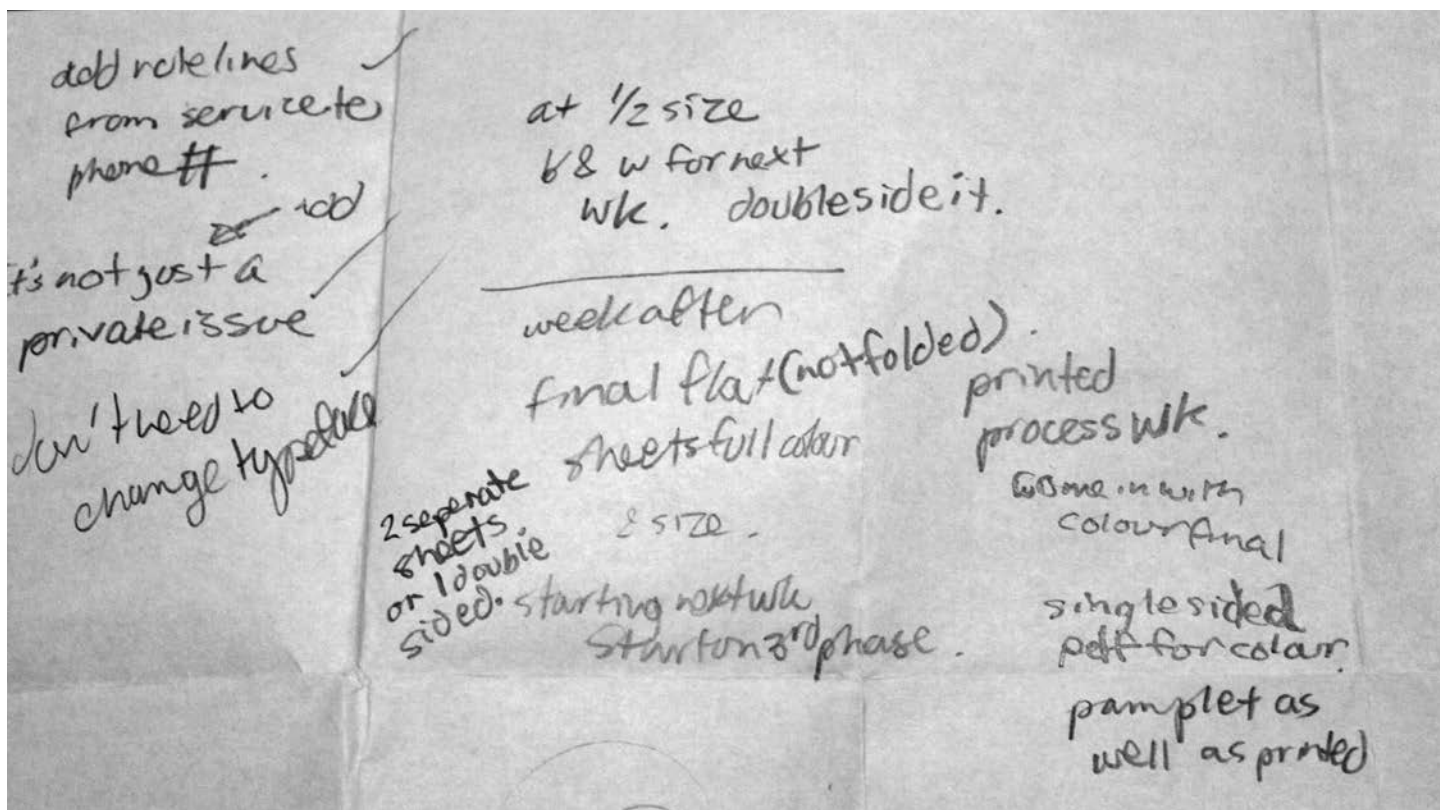 add rule lines
from service to
phone #.
add
it's not just a
private issue
don't need to
change typeface
at 1/2 size
b & w for next
wk. double side it.
week after
final flat (not folded).
sheets full colour
size.
2 seperate
sheets.
or 1 double
sided.
starting next wk
start on 3rd phase.
printed
process wk.
come in with
colour final
single sided
pdf for colour.
pamplet as
well as printed